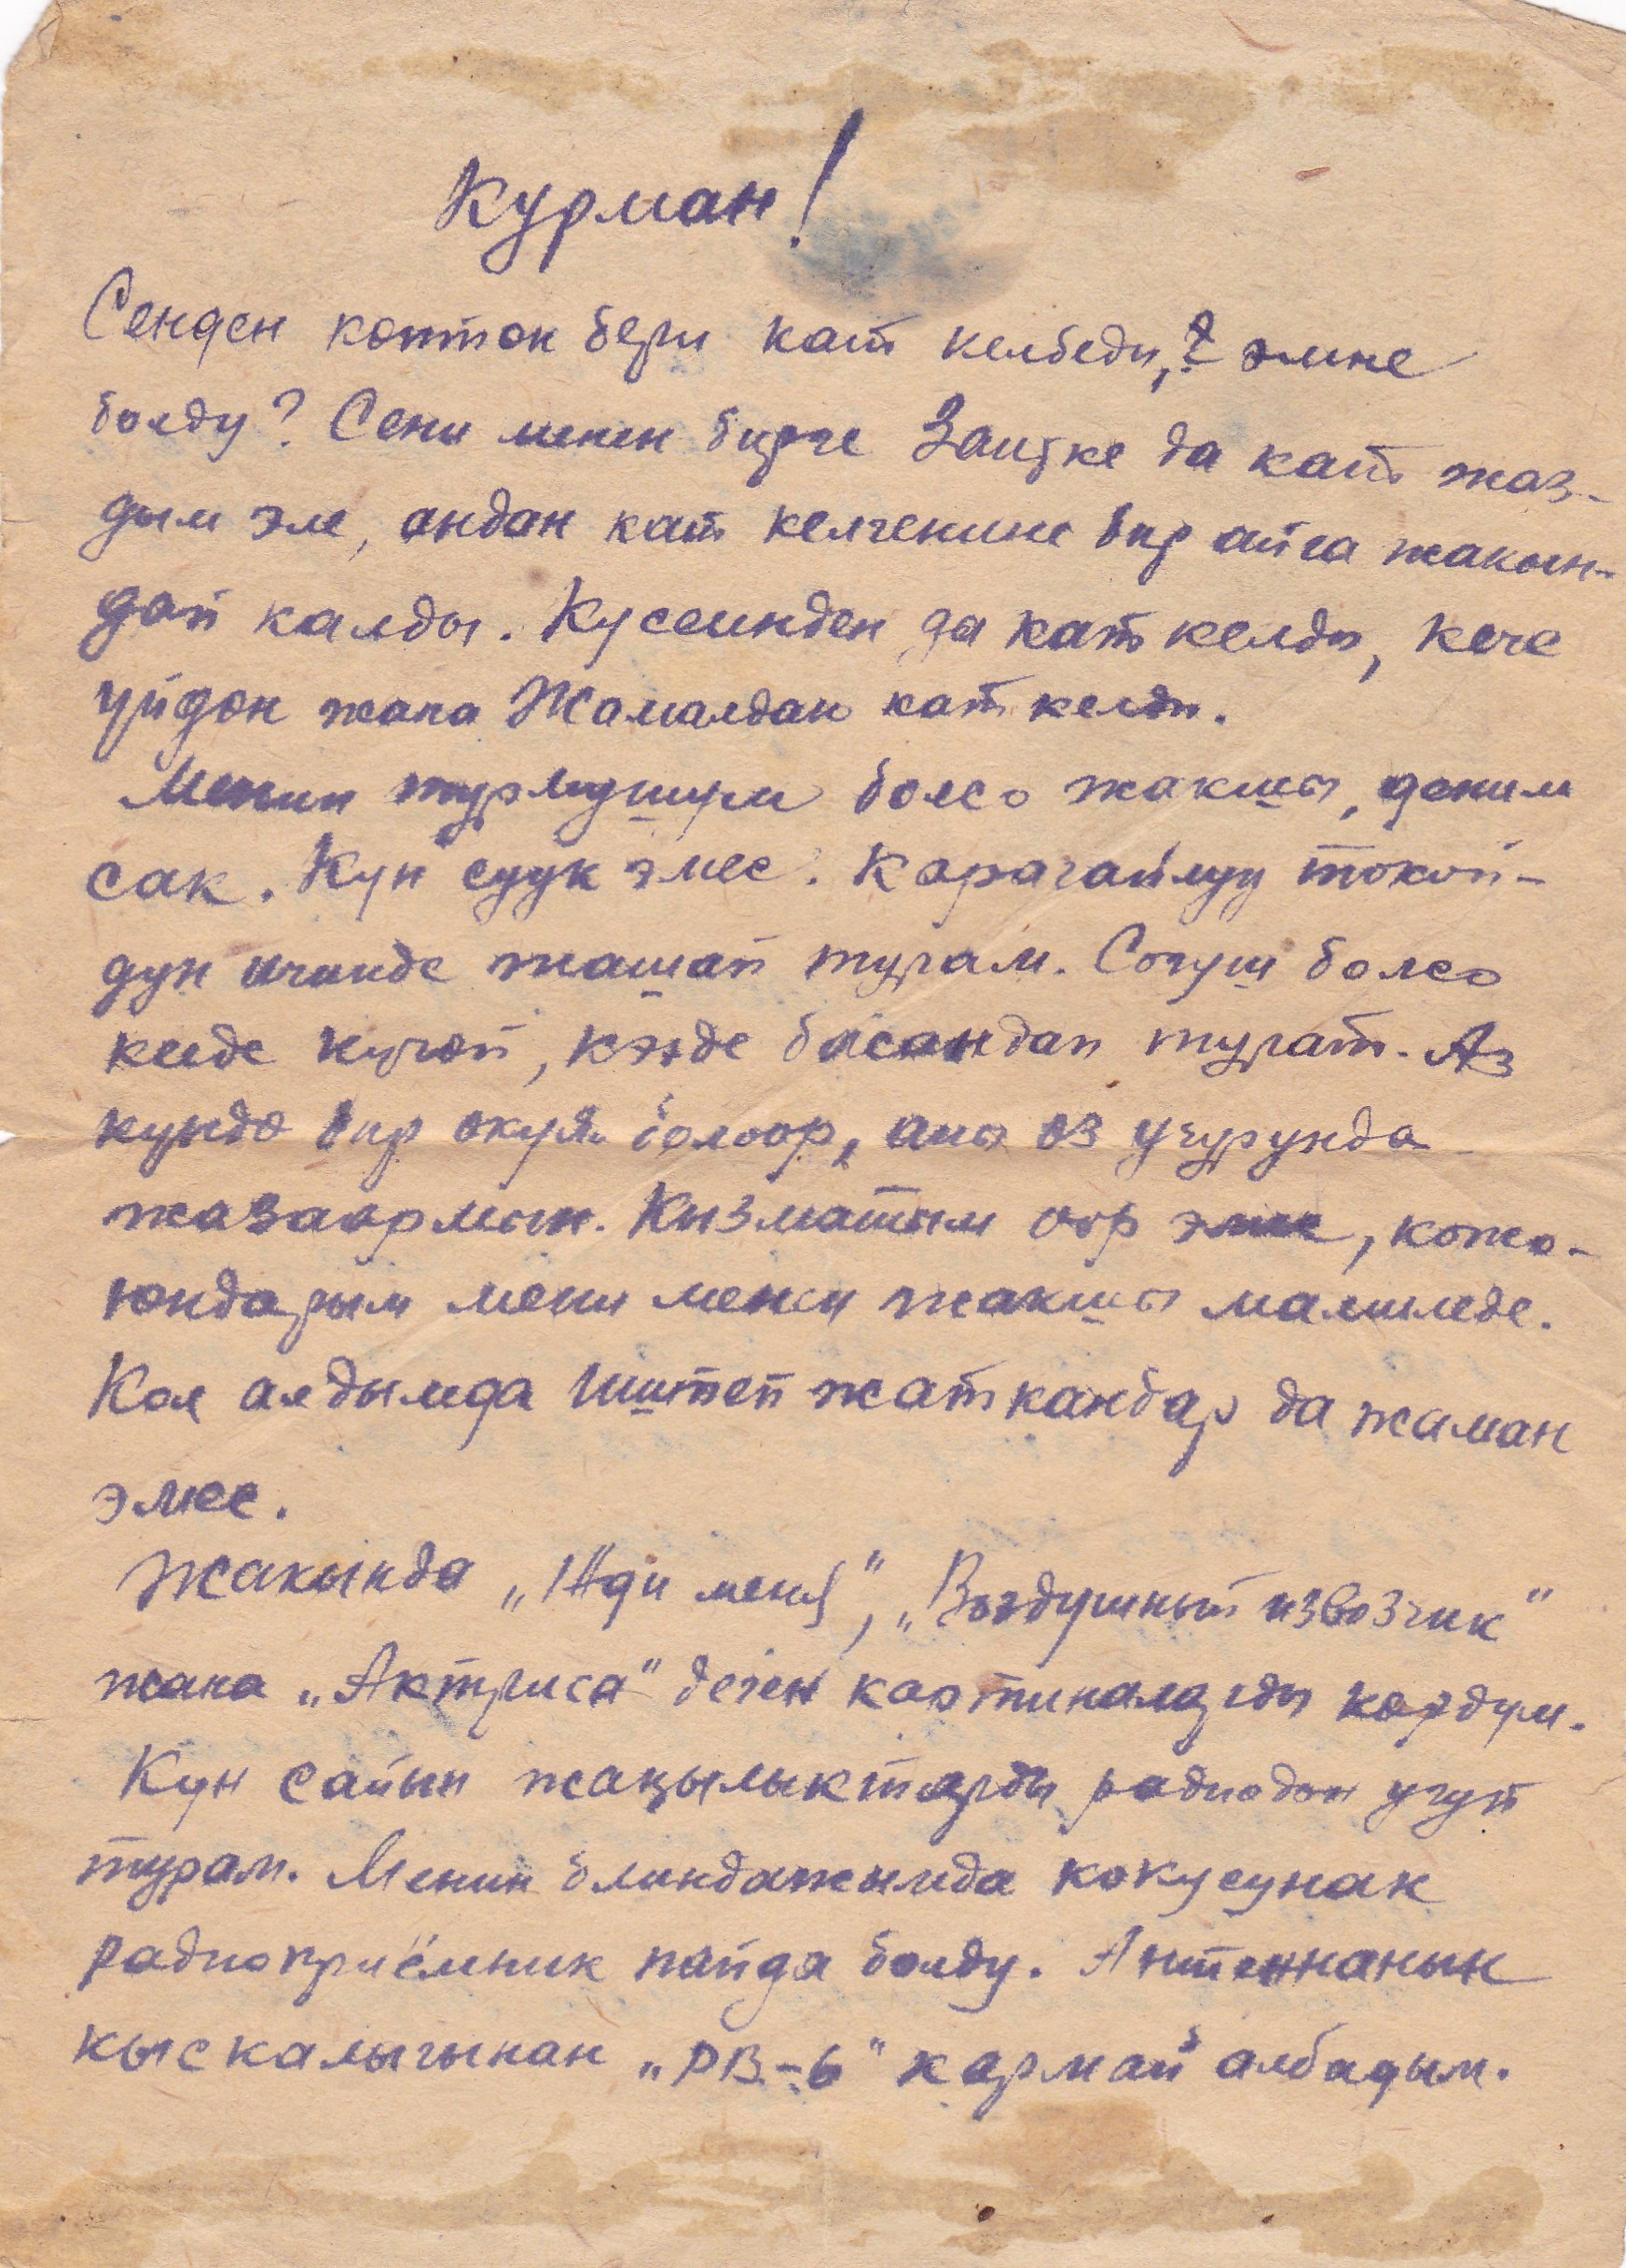 Курман!
Сенден коптон бери кат келбеди, эмне
болду? Сени менен бирге Заитке да кат жаз-
дым эле, андан кат келгенине бир айга жакын-
дап калды. Кусеинден да кат келди, кече
уйдон жана Жамалдан кат келди.
Менин турмушум болсо жакшы, деним
сак. Кун суук эмес. Карагайлуу токой-
дун ичинде жашап турам. Согуш болсо
кееде кучоп, кээде басандап турат. Аз
кундо бир окуя болоор, аны оз учурунда
жазаармын. Кызматым оор эмес, кожо-
юндарым мени менен жакшы мамиледе.
Кол алдымда иштеп жаткандар да жаман
эмес.
Жакында „Жди меня", „Воздушный извозчик"
жана „Актриса" деген картиналарды кордум.
Кун сайын жаңылыктарды радиодон угуп
турам. Менин блиндажымда кокусунак
радиоприёмник пайда болду. Антеннанын
кыскалыгынан „РВ-6" кармай албадым.